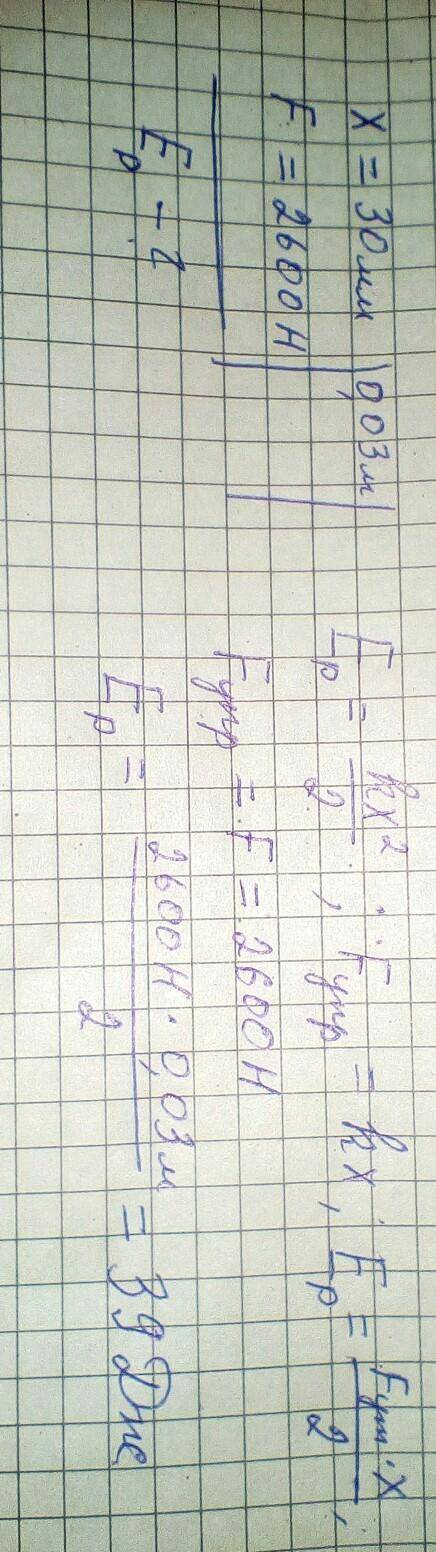 x = 30 мм | 0,03 м
F = 2600 Н
Eр - ?
Eр = kx²/2 ; Fупр = kx ; Eр = Fупр·x/2 ;
Fупр = F = 2600 Н
Eр = 2600 Н · 0,03 м / 2 = 39 Дж